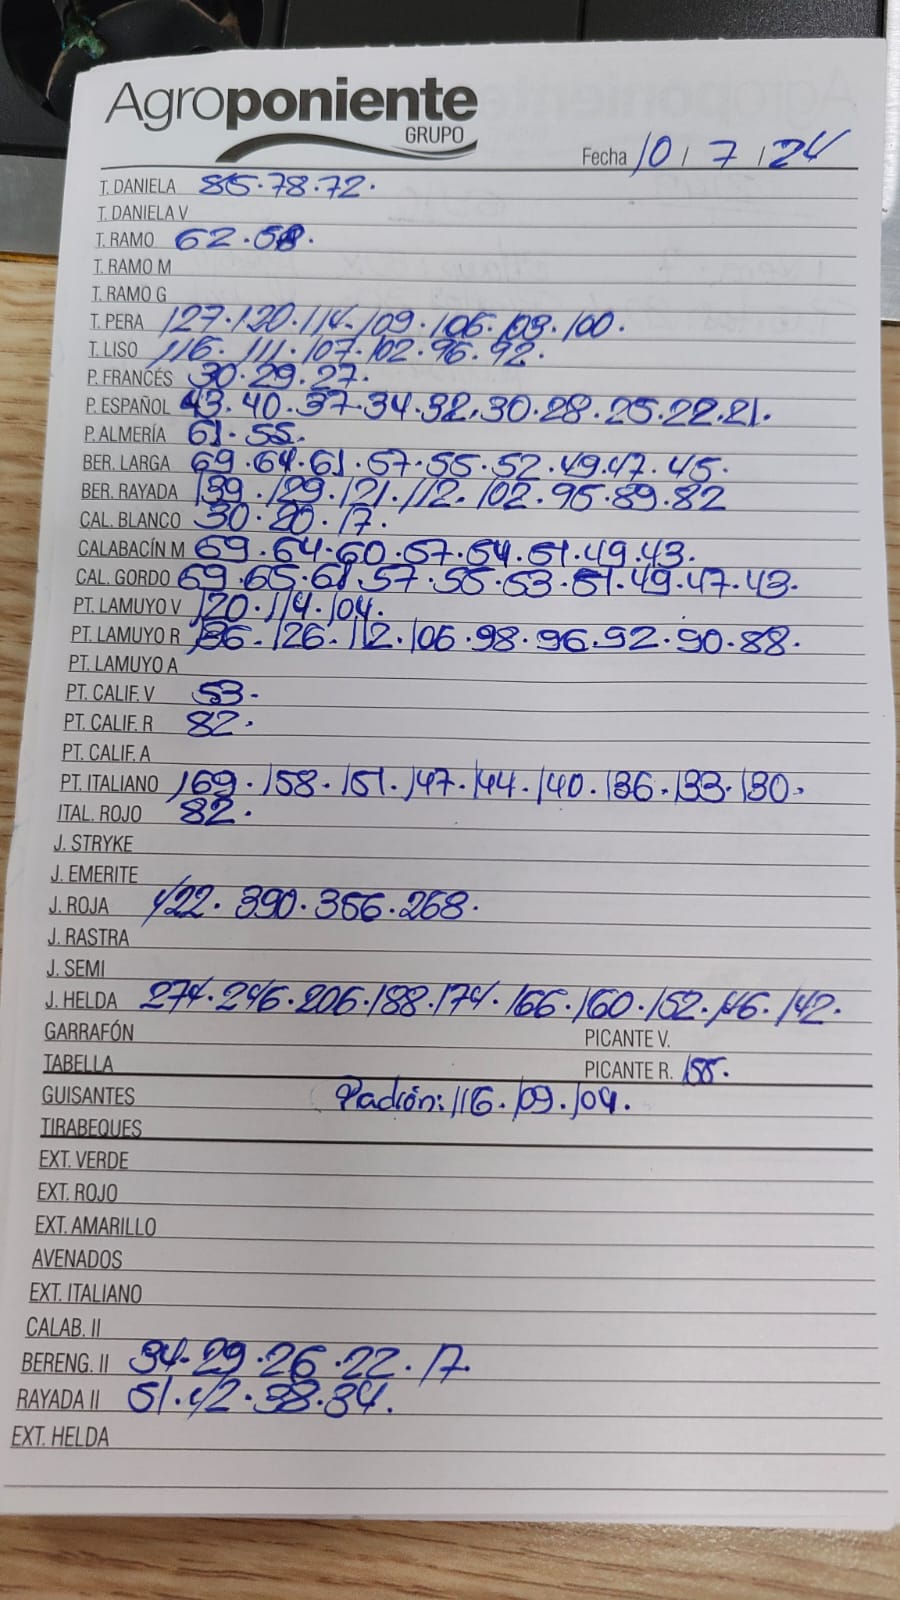 Agroponiente
GRUPO
Fecha 10 / 7 / 24
T. DANIELA 85.78.72.
T. DANIELA V
T. RAMO 62.58.
T. RAMO M
T. RAMO G
T. PERA 127.120.114.109.106.103.100.
T. LISO 116.111.107.102.96.92.
P. FRANCÉS 30.29.27.
P. ESPAÑOL 43.40.37.34.32.30.28.25.22.21.
P. ALMERÍA 61.55.
BER. LARGA 69.64.61.57.55.52.49.47.45.
BER. RAYADA 139.129.121.112.102.95.89.82
CAL. BLANCO 30.20.17.
CALABACÍN M 69.64.60.57.54.51.49.43.
CAL. GORDO 69.65.61.57.55.53.51.49.47.43.
PT. LAMUYO V 120.114.104.
PT. LAMUYO R 136.126.112.106.98.96.92.90.88.
PT. LAMUYO A
PT. CALIF. V 53.
PT. CALIF. R 82.
PT. CALIF. A
PT. ITALIANO 169.158.151.147.144.140.136.133.130.
ITAL. ROJO 82.
J. STRYKE
J. EMERITE
J. ROJA 422.390.356.268.
J. RASTRA
J. SEMI
J. HELDA 274.246.206.188.174.166.160.152.146.142.
GARRAFÓN PICANTE V.
TABELLA PICANTE R. 155.
GUISANTES Padrón: 116.109.104.
TIRABEQUES
EXT. VERDE
EXT. ROJO
EXT. AMARILLO
AVENADOS
EXT. ITALIANO
CALAB. II
BERENG. II 34.29.26.22.17.
RAYADA II 51.42.38.34.
EXT. HELDA